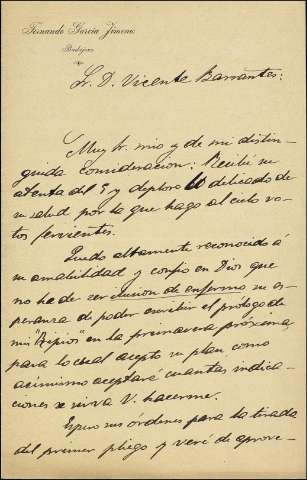 Fernando García Jimeno
Badajoz
Sr. D. Vicente Barrantes:
Muy Sr. mio y de mi distin-
guida consideracion: Recibí su
atenta del 5 y deploro lo delicado de
su salud por la que hago al cielo vo-
tos fervientes.
Quedo altamente reconocido á
su amabilidad y confio en Dios que
no ha de ser ilusion de enfermo su es-
peranza de poder escribir el prólogo de
mis "Ripios" en la primavera próxima,
para lo cual acepto su plan como
asimismo aceptaré cuantas indica-
ciones se sirva V. hacerme.
Espero sus órdenes para la tirada
del primer pliego y veré de aprove-